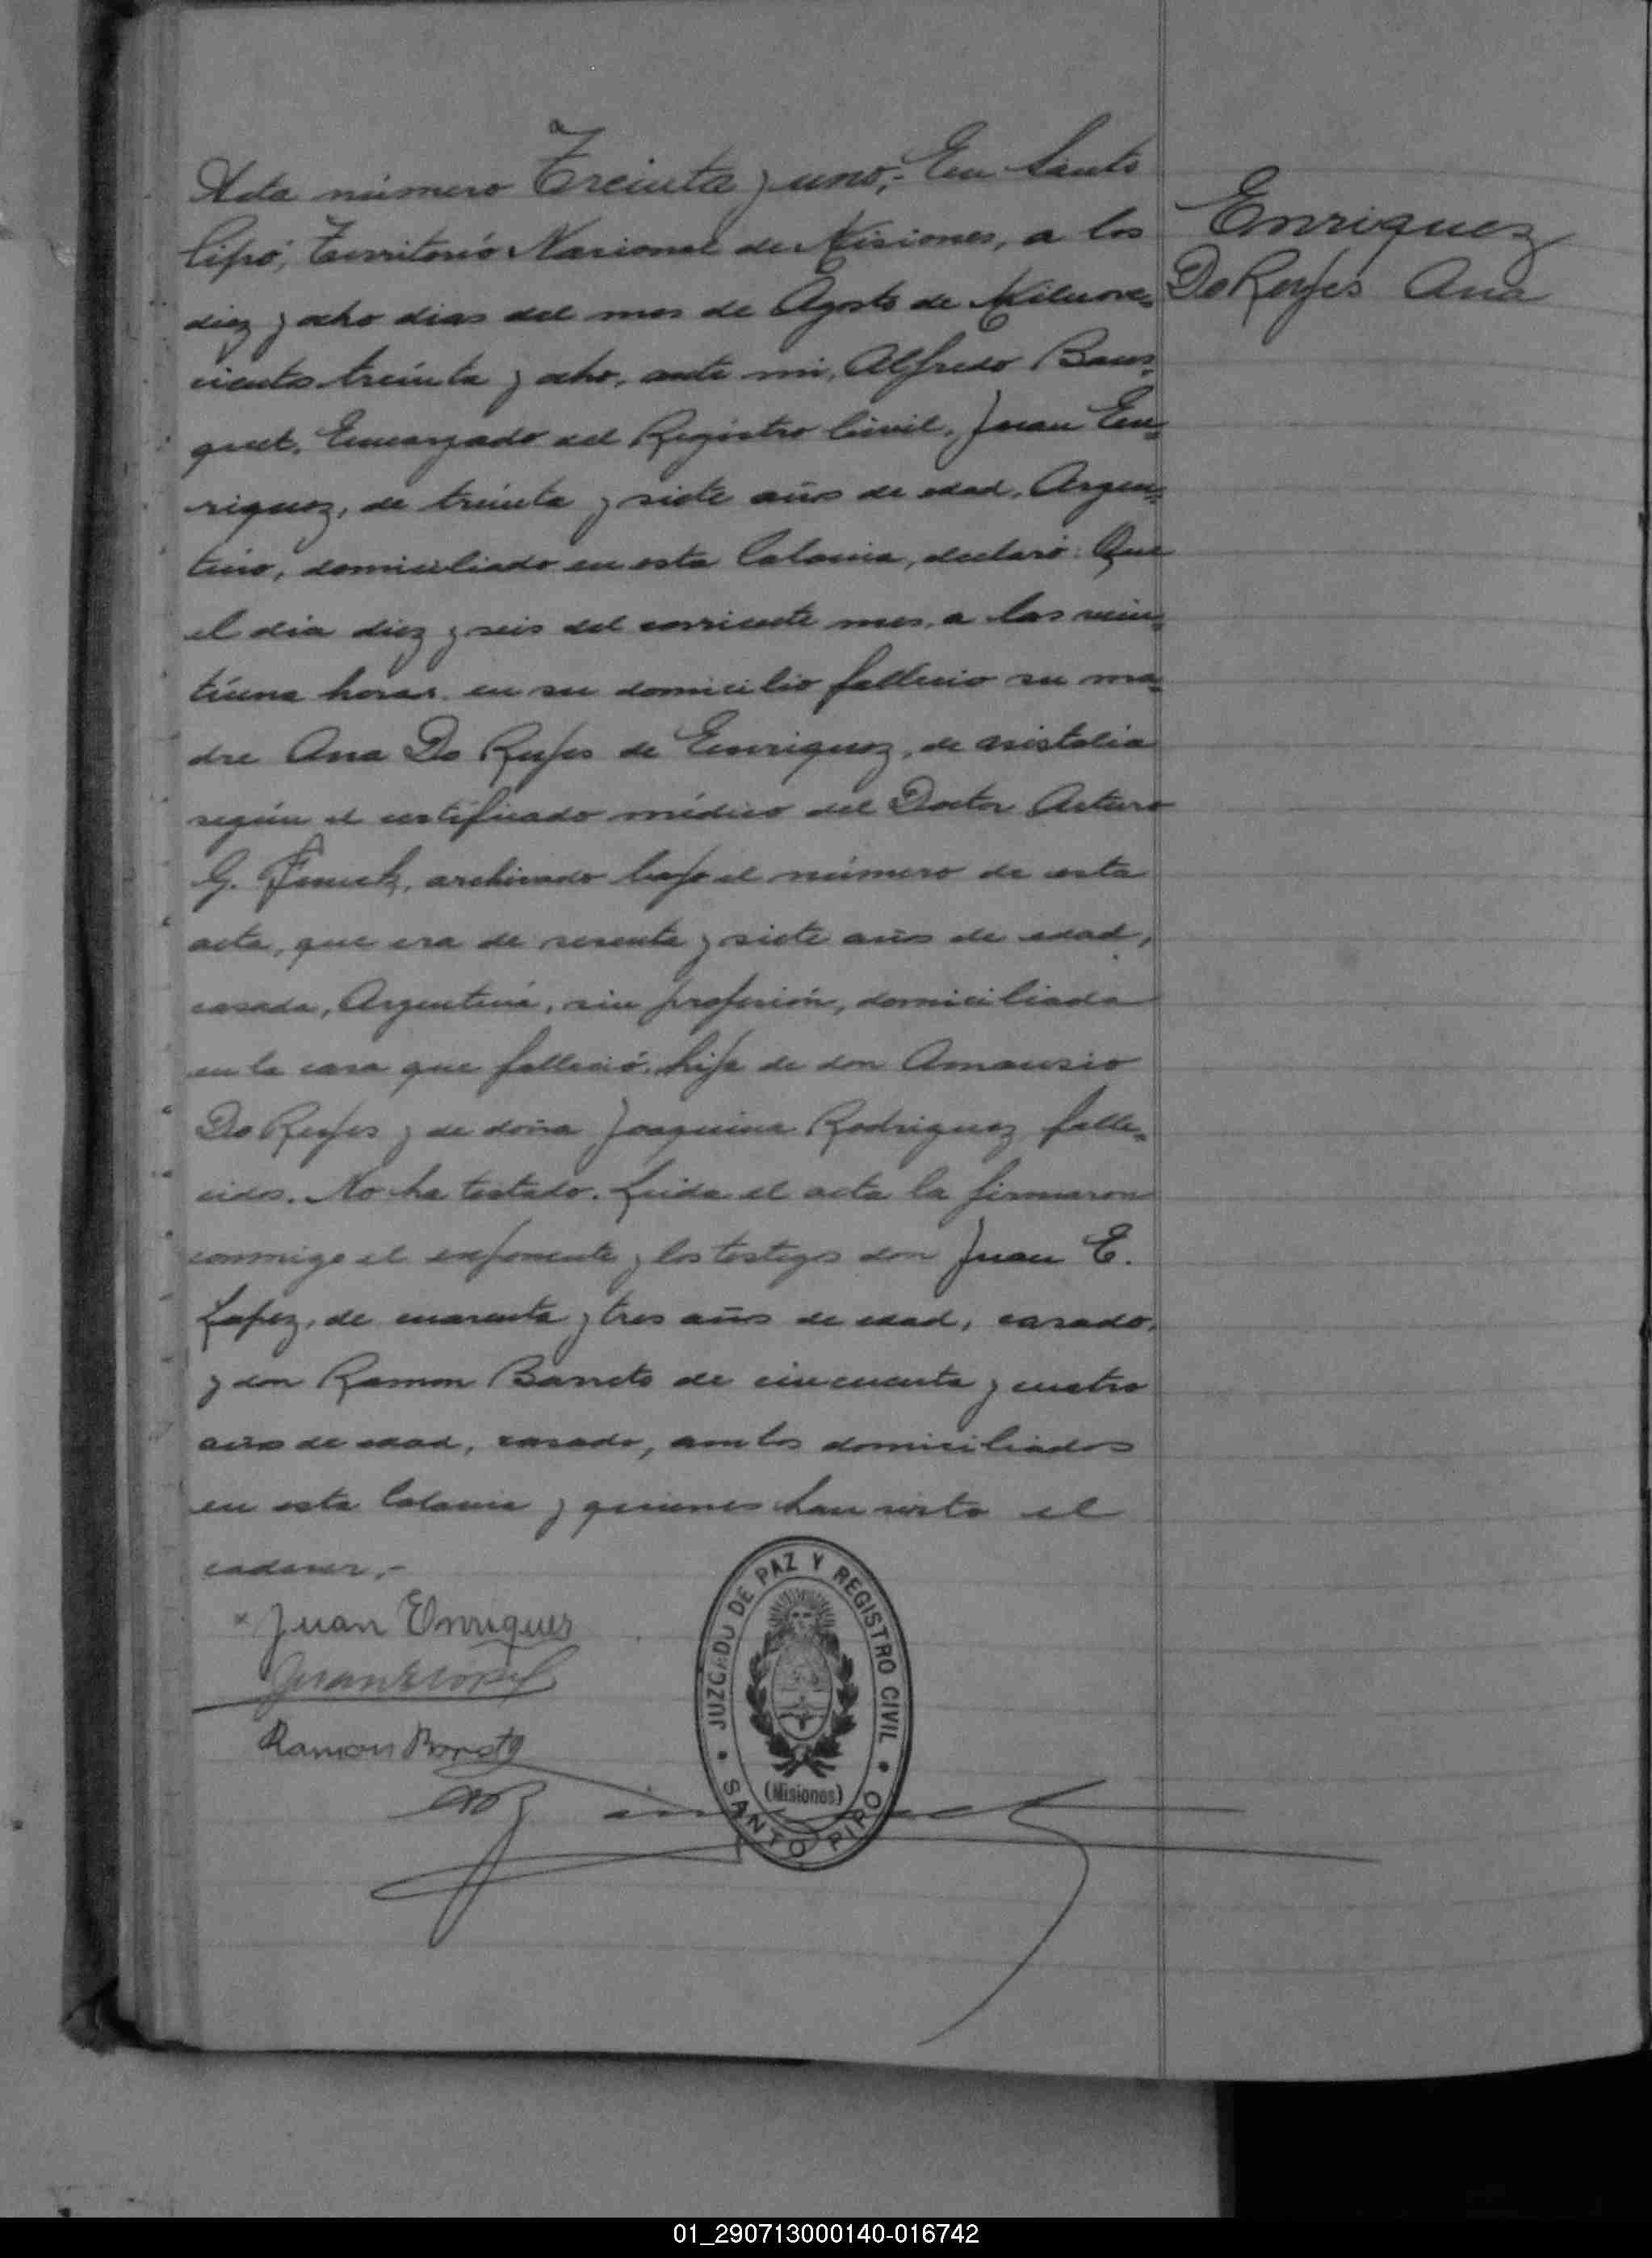 Acta número Treinta y uno; En Santo
Enriquez
Do Rejes Ana
Cipó, Territorio Nasional de Misiones, a los
diez y ocho dias del mes de Agosto de Milnove=
cientos treinta y ocho, ante mi, Alfredo Baus=
quet, Encargado del Registro Civil, Juan En=
riquez, de treinta y siete años de edad, Argen=
tino, domiciliado en esta Colonia, declaró: Que
el dia diez y seis del corriente mes, a las vein=
tiuna horas en su domicilio fallecio su ma=
dre Ana Do Rejes de Enriquez, de asistolia
según el certificado médico del Doctor Arturo
G. archivado bajo el número de esta
acta, que era de sesenta y siete años de edad,
casada, Argentina, sin profesión, domiciliada
en la casa que falleció, hija de don Amansio
Do Rejes y de doña Joaquina Rodriguez, falle=
cidos. No ha testado. Leida el acta la firmaron
conmigo el exponente y los testigos don Juan E.
Lopez, de cuarenta y tres años de edad, casado,
y don Ramon Barreto de cincuenta y cuatro
años de edad, casado, ambos domiciliados
en esta Colonia y quienes han visto el
cadaver.-
x Juan Enriques
Juan E Lopez
Ramon Barreto
JUZGADO DE PAZ Y REGISTRO CIVIL
(Misiones)
SANTO PIPO
01_290713000140-016742